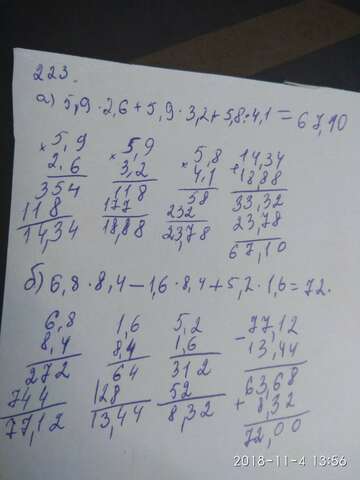 223.
а) 5,9 · 2,6 + 5,9 · 3,2 + 5,8 · 4,1 = 67,10
× 5,9
2,6
354
118
14,34
× 5,9
3,2
118
177
18,88
× 5,8
4,1
58
232
23,78
+ 14,34
18,88
33,32
23,78
67,10
б) 6,8 · 8,4 - 1,6 · 8,4 + 5,2 · 1,6 = 72.
6,8
8,4
272
744
77,12
1,6
8,4
64
128
13,44
5,2
1,6
312
52
8,32
- 77,12
13,44
63,68
+ 8,32
72,00
2018-11-4 13:56